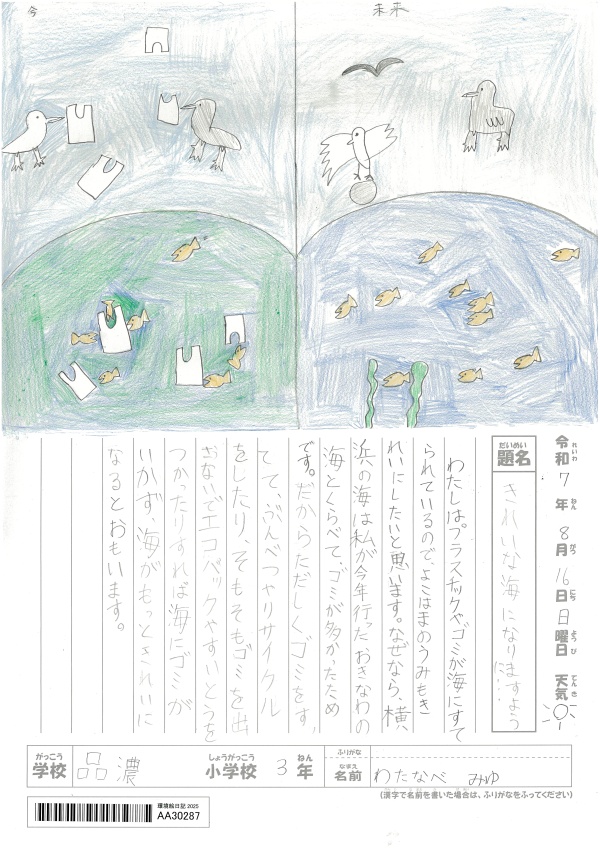 今
未来
令和 7 年 8 月 16 日 日 曜日 天気
れいわ ねん がつ にち ようび てんき
だいめい
題名
きれいな海になりますように…
わたしはプラスチックやゴミが海にすて
られているので、よこはまのうみもき
れいにしたいと思います。なぜなら、横
浜の海は私が今年行ったおきなわの
海とくらべて、ゴミが多かったため
です。だからただしくゴミをす
てて、ぶんべつやリサイクル
をしたり、そもそもゴミを出
さないでエコバックやすいとうを
つかったりすれば海にゴミが
いかず、海がもっときれいに
なるとおもいます。
がっこう
学校
品濃
しょうがっこう
小学校
3
ねん
年
ふりがな
なまえ
名前
わたなべ みゆ
(漢字で名前を書いた場合は、ふりがなをふってください)
環境絵日記 2025
AA30287